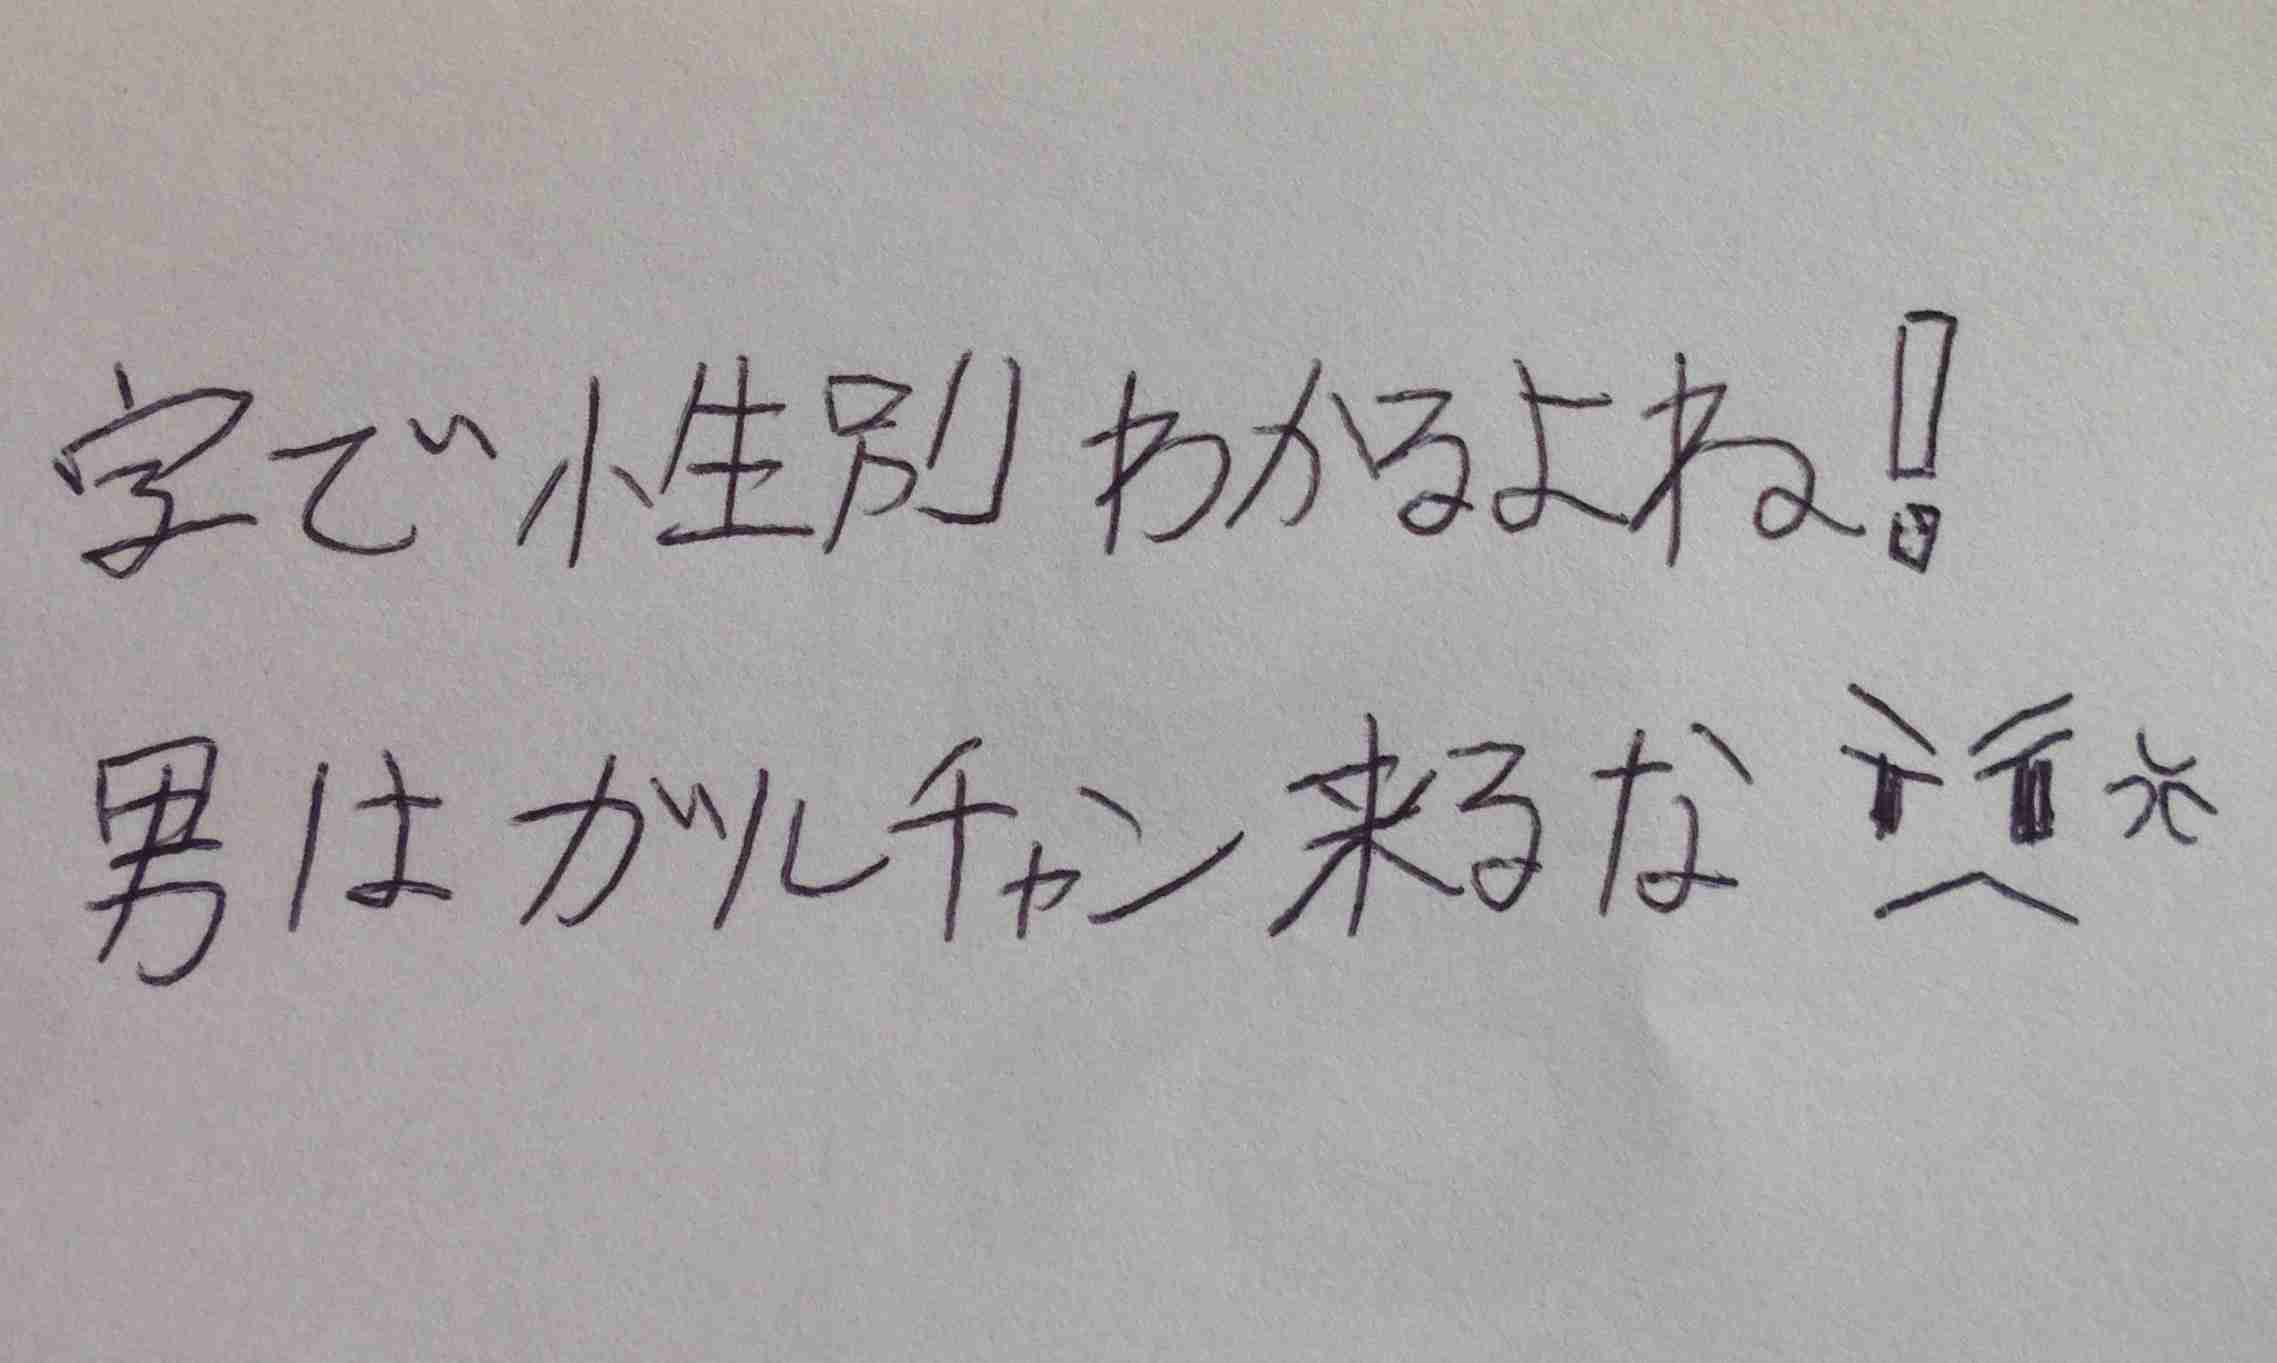 字で性別わかるよね!
男はガルチャン来るな